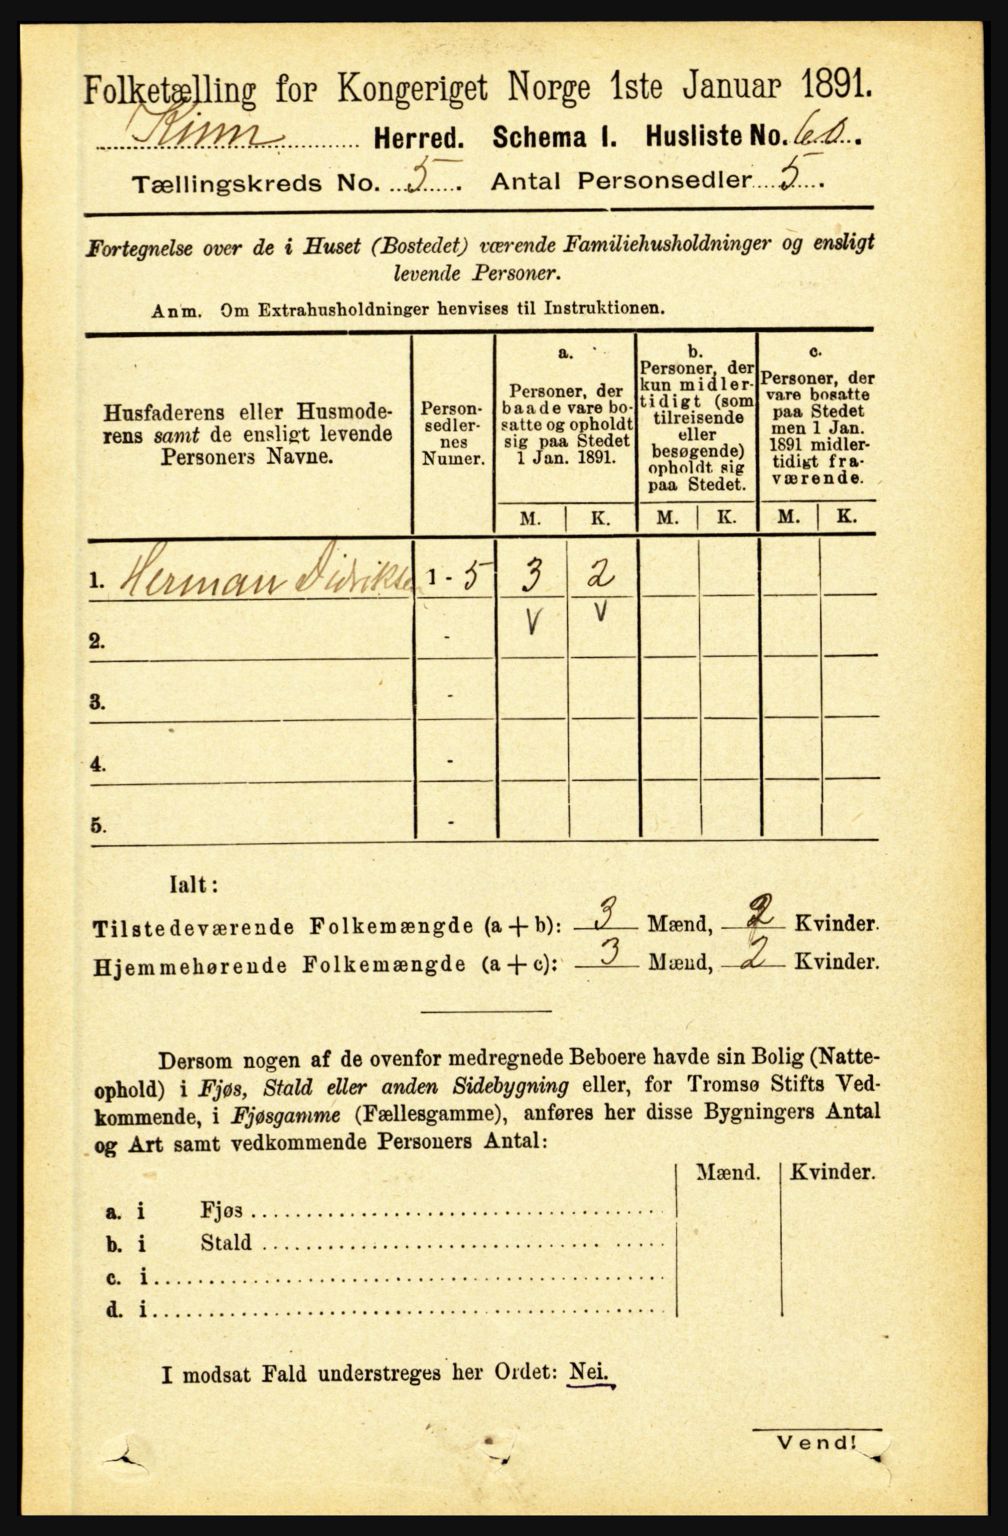 Folketælling for Kongeriget Norge 1ste Januar 1891.
Kinn Herred. Schema I. Husliste No. 60.
Tællingskreds No. 5. Antal Personsedler 5.
Fortegnelse over de i Huset (Bostedet) værende Familiehusholdninger og ensligt
levende Personer.
Anm. Om Extrahusholdninger henvises til Instruktionen.
Husfaderens eller Husmode-
rens samt de ensligt levende
Personers Navne.
Person-
sedler-
nes
Numer.
a.
Personer, der
baade vare bo-
satte og opholdt
sig paa Stedet
1 Jan. 1891.
b.
Personer, der
kun midler-
tidigt (som
tilreisende
eller
besøgende)
opholdt sig
paa Stedet.
c.
Personer, der
vare bosatte
paa Stedet
men 1 Jan.
1891 midler-
tidigt fra-
værende.
M. K. M. K. M. K.
1. Herman Didriksen 1 - 5 3 2
2. - v v
3. -
4. -
5. -
Ialt:
Tilstedeværende Folkemængde (a + b): 3 Mænd, 2 Kvinder.
Hjemmehørende Folkemængde (a + c): 3 Mænd, 2 Kvinder.
Dersom nogen af de ovenfor medregnede Beboere havde sin Bolig (Natte-
ophold) i Fjøs, Stald eller anden Sidebygning eller, for Tromsø Stifts Ved-
kommende, i Fjøsgamme (Fællesgamme), anføres her disse Bygningers Antal
og Art samt vedkommende Personers Antal:
Mænd. Kvinder.
a. i Fjøs
b. i Stald
c. i
d. i
I modsat Fald understreges her Ordet: Nei.
Vend!